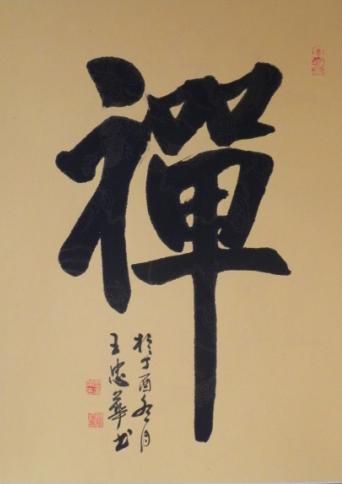 禪
於丁酉冬月
王忠華書